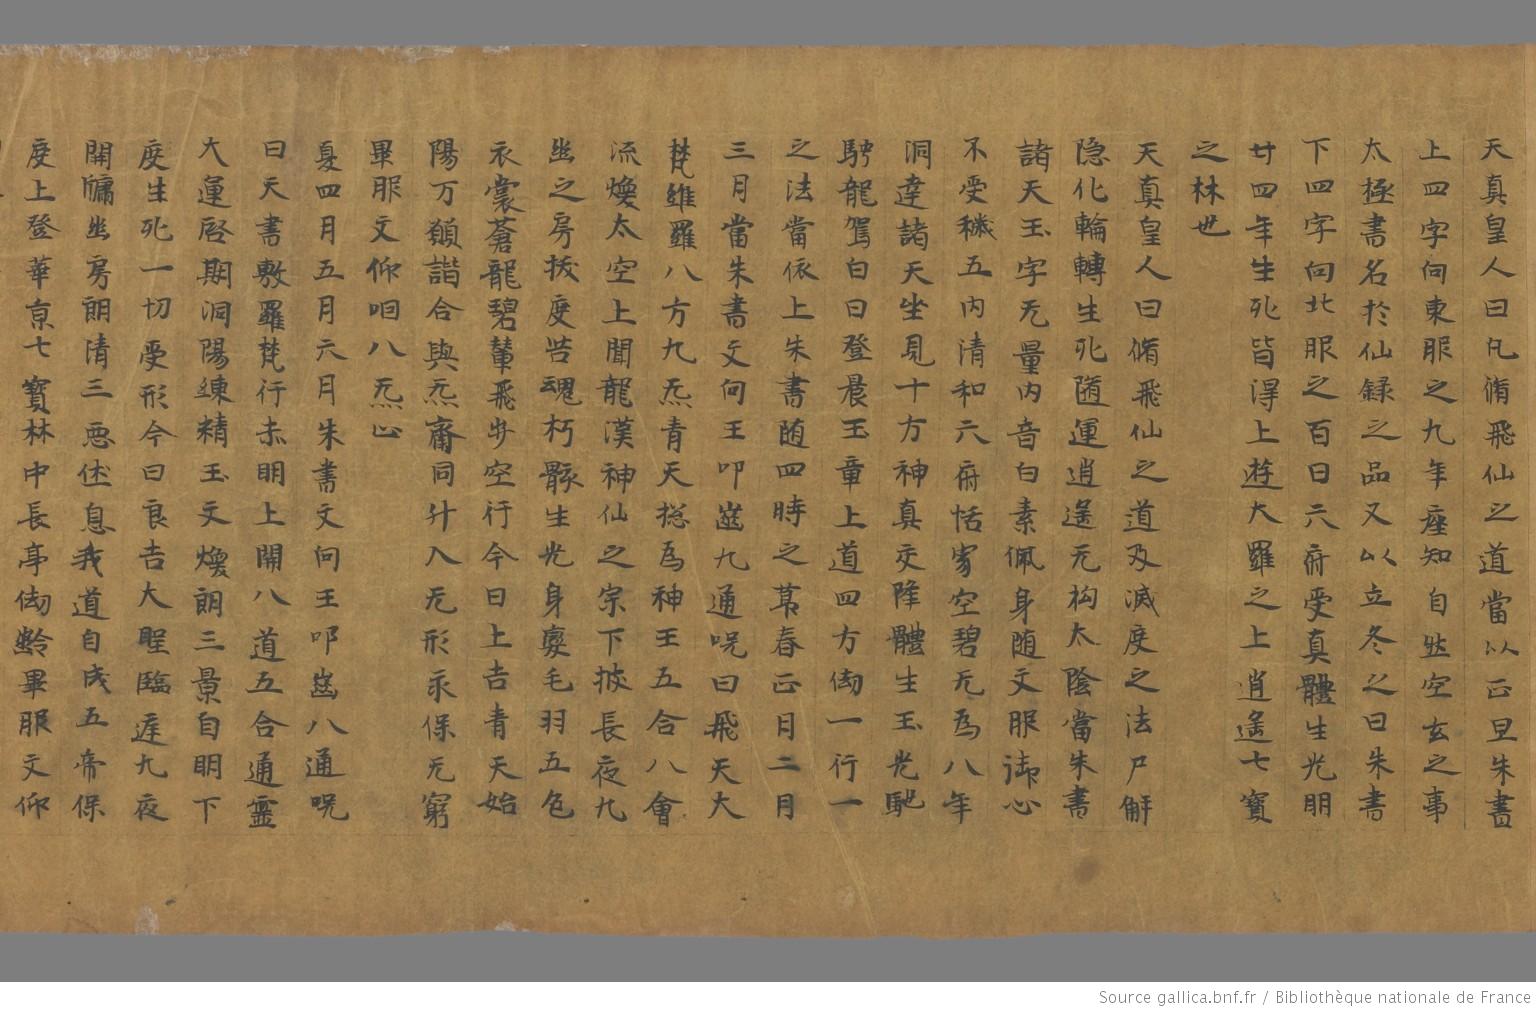 天真皇人曰凡脩飛仙之道當以正旦朱書
上四字向東服之九年座知自然空玄之事
太極書名於仙録之品又以立冬之日朱書
下四字向北服之百日六府受真體生光明
廿四年生死皆得上遊大羅之上逍遙七寶
之林也
天真皇人曰脩飛仙之道及滅度之法尸解
隱化輪轉生死隨運逍遙无拘太陰當朱書
諸天玉字无量內音白素佩身隨文服御心
不受穢五內清和六府恬寥空碧无為八年
洞達諸天坐見十方神真交降體生玉光馳
騁龍駕白日登晨玉童上道四方劫一行一
之法當依上朱書隨四時之暮春正月二月
三月當朱書文向王叩齒九通呪曰飛天大
梵維羅八方九炁青天捴為神王五合八會
流煥太空上開龍漢神仙之宗下披長夜九
幽之房拔度苦魂朽骸生光身變毛羽五色
衣裳蒼龍碧輦飛步空行今日上吉青天始
陽万願諧合與炁齊同升入无形永保无窮
畢服文仰咽八炁止
夏四月五月六月朱書文向王叩齒八通呪
曰天書敷羅梵行赤明上開八道五合通靈
大運啓期洞陽練精玉文煥朗三景自明下
度生死一切受形今日良吉大聖臨庭九夜
開牗幽房朗清三惡伏息我道自成五帝保
度上登華京七寶林中長享劫齡畢服文仰